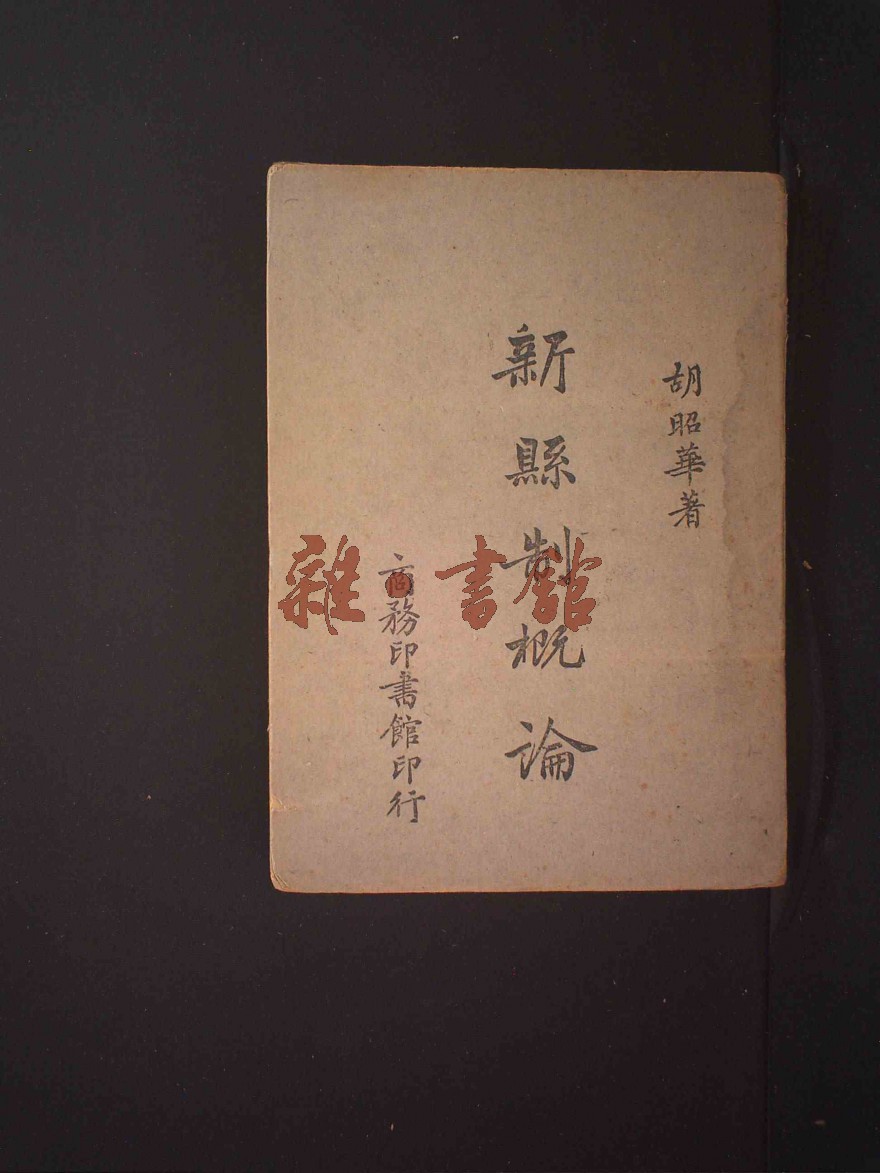 胡昭華著
新縣制概論
商務印書館印行
雜書館